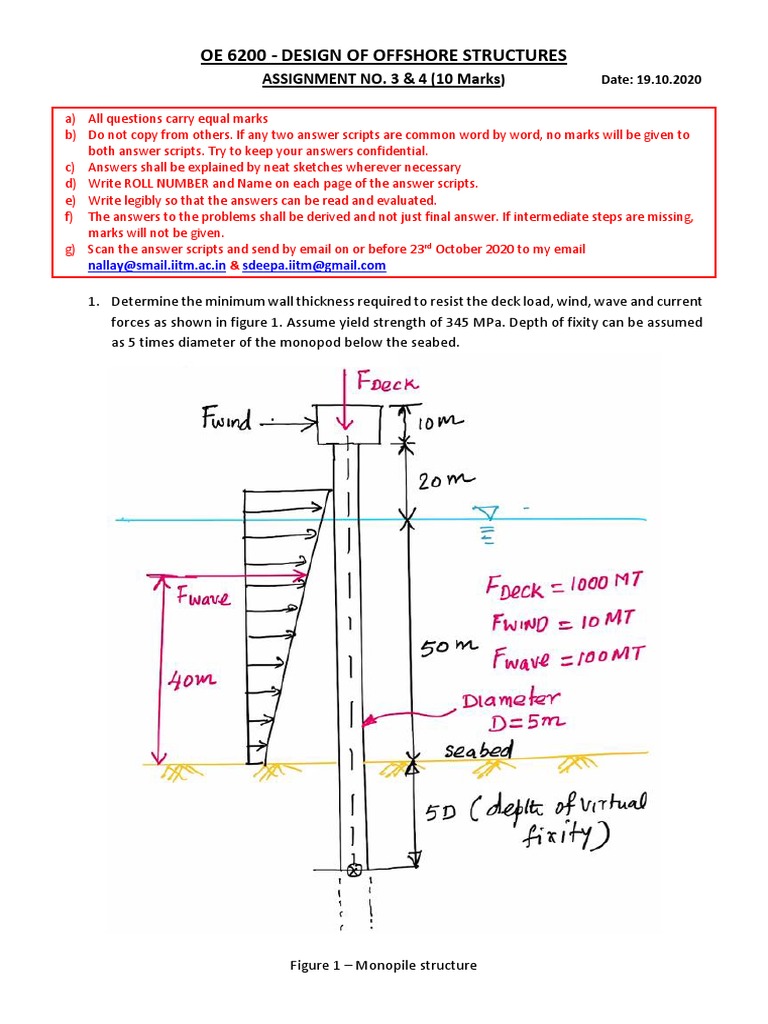 OE 6200 - DESIGN OF OFFSHORE STRUCTURES
ASSIGNMENT NO. 3 & 4 (10 Marks) Date: 19.10.2020
a) All questions carry equal marks
b) Do not copy from others. If any two answer scripts are common word by word, no marks will be given to
both answer scripts. Try to keep your answers confidential.
c) Answers shall be explained by neat sketches wherever necessary
d) Write ROLL NUMBER and Name on each page of the answer scripts.
e) Write legibly so that the answers can be read and evaluated.
f) The answers to the problems shall be derived and not just final answer. If intermediate steps are missing,
marks will not be given.
g) Scan the answer scripts and send by email on or before 23rd October 2020 to my email
nallay@smail.iitm.ac.in & sdeepa.iitm@gmail.com
1. Determine the minimum wall thickness required to resist the deck load, wind, wave and current
forces as shown in figure 1. Assume yield strength of 345 MPa. Depth of fixity can be assumed
as 5 times diameter of the monopod below the seabed.
FDECK
Fwind
10m
20m
FDECK = 1000 MT
Fwave
FWIND = 10 MT
50m
Fwave = 100MT
40m
Diameter
D = 5m
seabed
5D (depth of virtual
fixity)
Figure 1 – Monopile structure